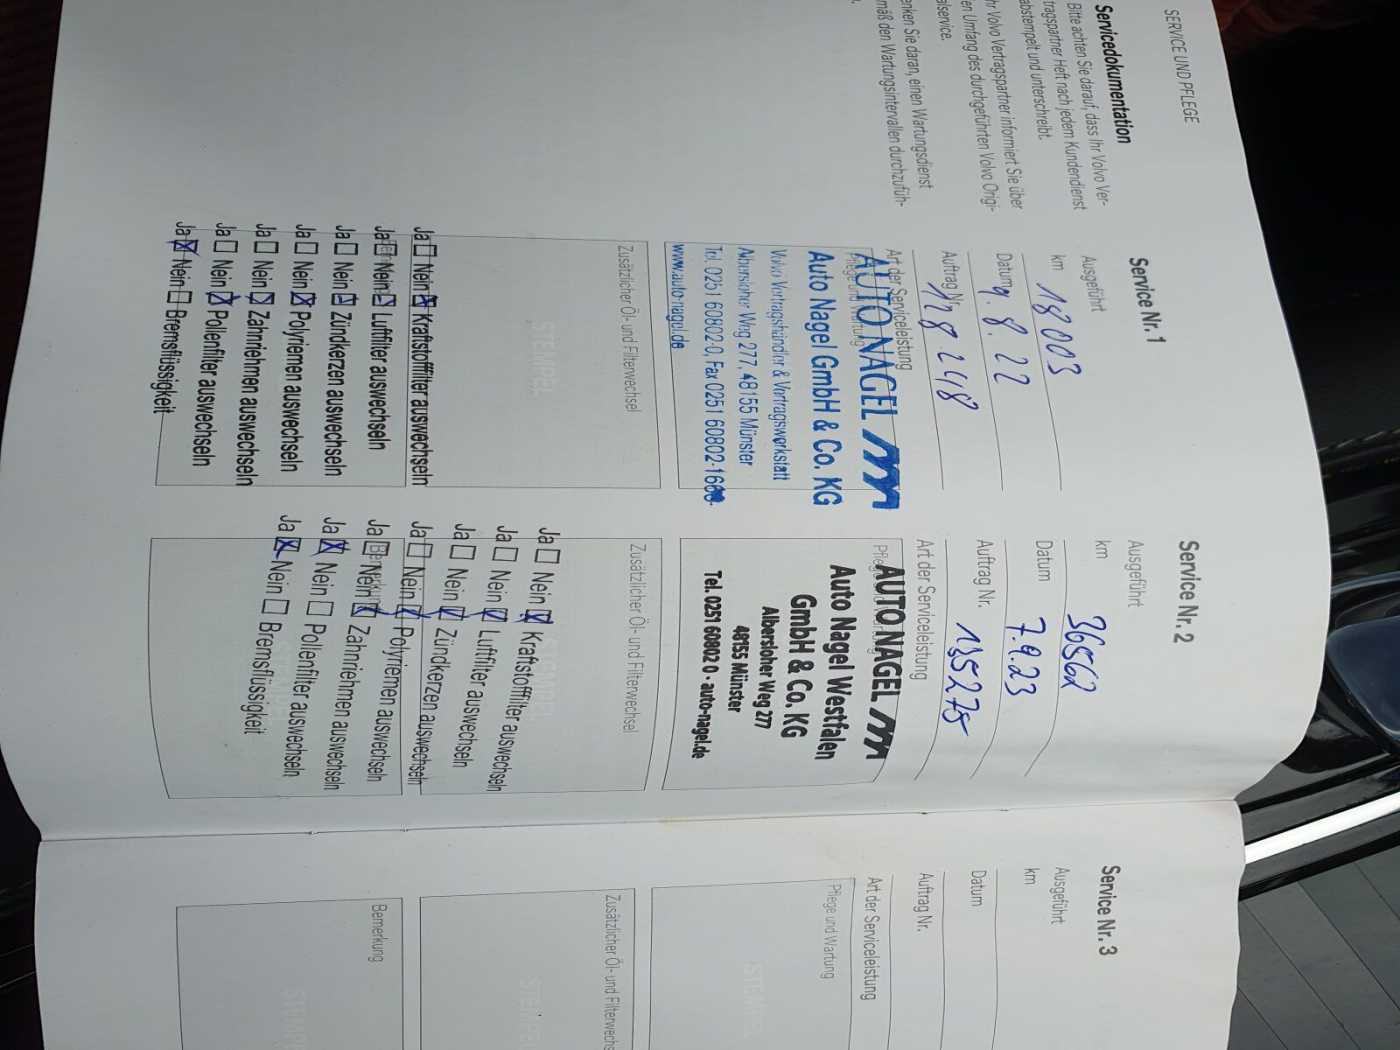 SERVICE UND PFLEGE
Servicedokumentation
Bitte achten Sie darauf, dass Ihr Volvo Ver-
tragspartner Heft nach jedem Kundendienst
abstempelt und unterschreibt.
hr Volvo Vertragspartner informiert Sie über
en Umfang des durchgeführten Volvo Origi-
alservice.
enken Sie daran, einen Wartungsdienst
mäß den Wartungsintervallen durchzufüh-
Service Nr. 1
Ausgeführt
km 18003
Datum 9. 8. 22
Auftrag Nr. 128 248
Art der Serviceleistung
Pflege und Wartung
AUTO NAGEL
Auto Nagel GmbH & Co. KG
Volvo Vertragshändler & Vertragswerkstatt
Albersloher Weg 277, 48155 Münster
Tel. 0251 60802-0, Fax 0251 60802-1680
www.auto-nagel.de
Zusätzlicher Öl- und Filterwechsel
STEMPEL
Ja ☐ Nein ☒ Kraftstofffilter auswechseln
Ja ☐ Nein ☒ Luftfilter auswechseln
Ja ☐ Nein ☒ Zündkerzen auswechseln
Ja ☐ Nein ☒ Polyriemen auswechseln
Ja ☐ Nein ☒ Zahnriehmen auswechseln
Ja ☐ Nein ☒ Pollenfilter auswechseln
Ja ☒ Nein ☐ Bremsflüssigkeit
Service Nr. 2
Ausgeführt
km 36562
Datum 7.9.23
Auftrag Nr. 135275
Art der Serviceleistung
AUTO NAGEL
Auto Nagel Westfalen
GmbH & Co. KG
Albersloher Weg 277
48155 Münster
Tel. 0251 60802 0 · auto-nagel.de
Zusätzlicher Öl- und Filterwechsel
STEMPEL
Ja ☐ Nein ☒ Kraftstofffilter auswechseln
Ja ☐ Nein ☒ Luftfilter auswechseln
Ja ☐ Nein ☒ Zündkerzen auswechseln
Ja ☐ Nein ☒ Polyriemen auswechseln
Ja ☐ Nein ☒ Zahnriehmen auswechseln
Ja ☒ Nein ☐ Pollenfilter auswechseln
Ja ☒ Nein ☐ Bremsflüssigkeit
Service Nr. 3
Ausgeführt
km
Datum
Auftrag Nr.
Art der Serviceleistung
Pflege und Wartung
STEMPEL
Zusätzlicher Öl- und Filterwechs
STEMPE
Bemerkung
STEMPE